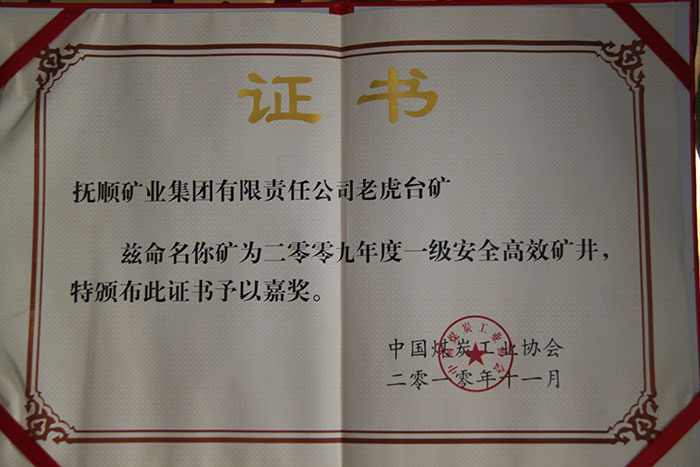 证书
抚顺矿业集团有限责任公司老虎台矿
兹命名你矿为二零零九年度一级安全高效矿井，
特颁布此证书予以嘉奖。
中国煤炭工业协会
二零一零年十一月
中国煤炭工业协会